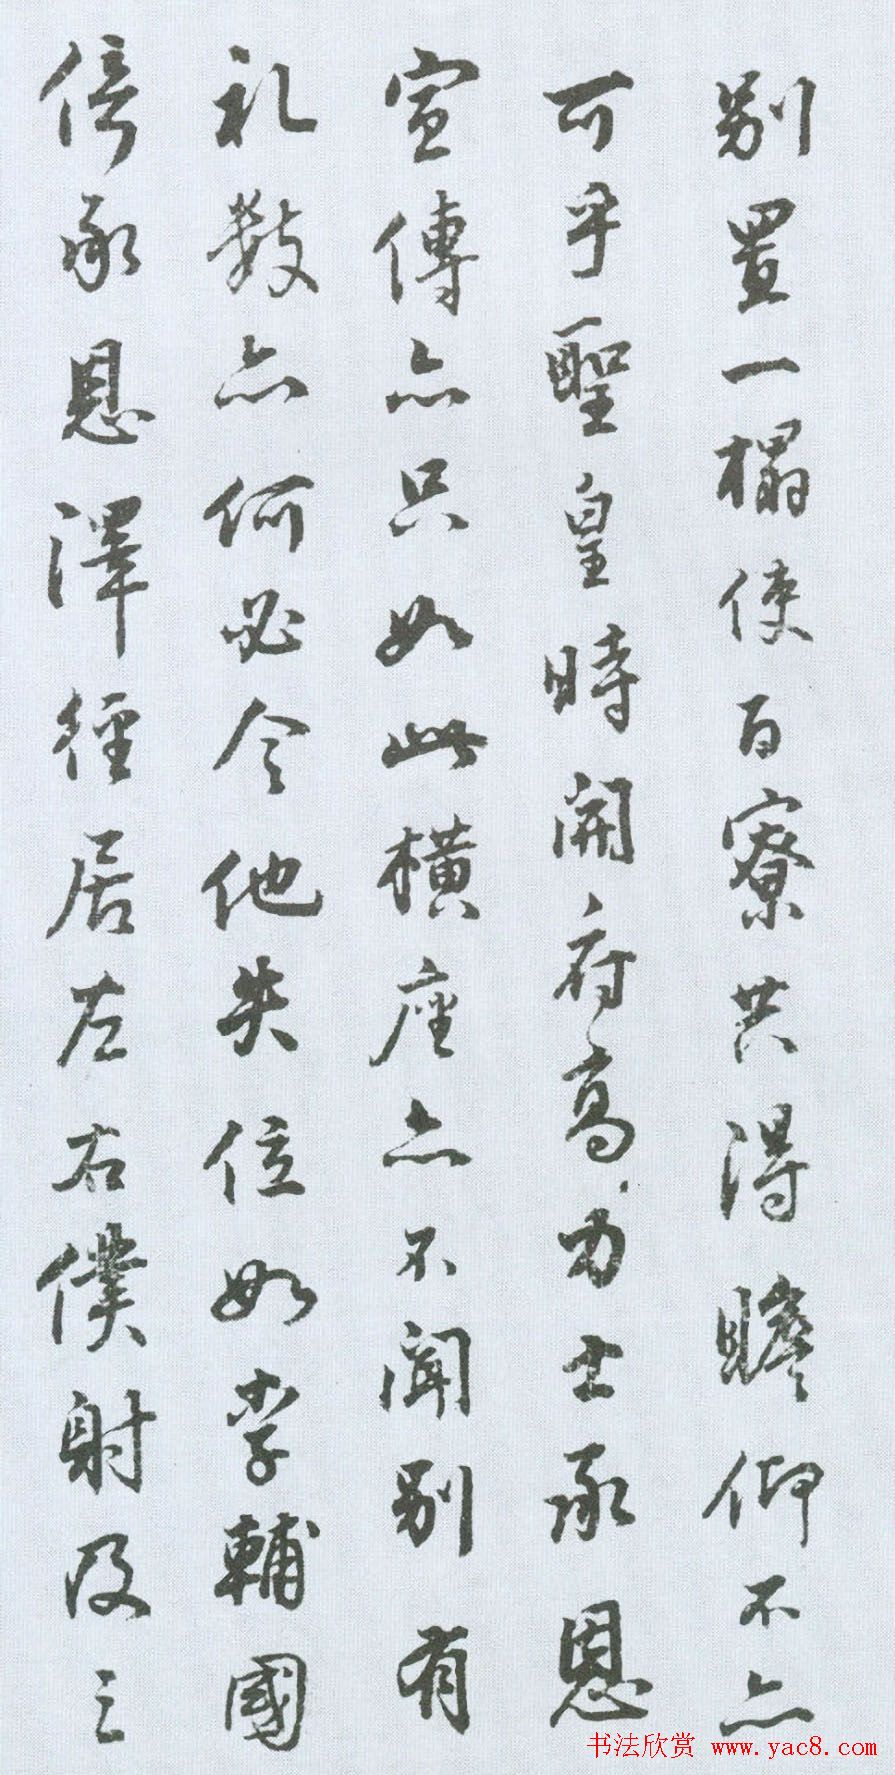 别置一榻使百寮共得瞻仰不亦
可乎聖皇時開府高力士承恩
宣傳亦只如此橫座亦不聞別有
礼數亦何必令他失位如李輔國
倚承恩澤徑居左右僕射及三
书法欣赏 www.yac8.com